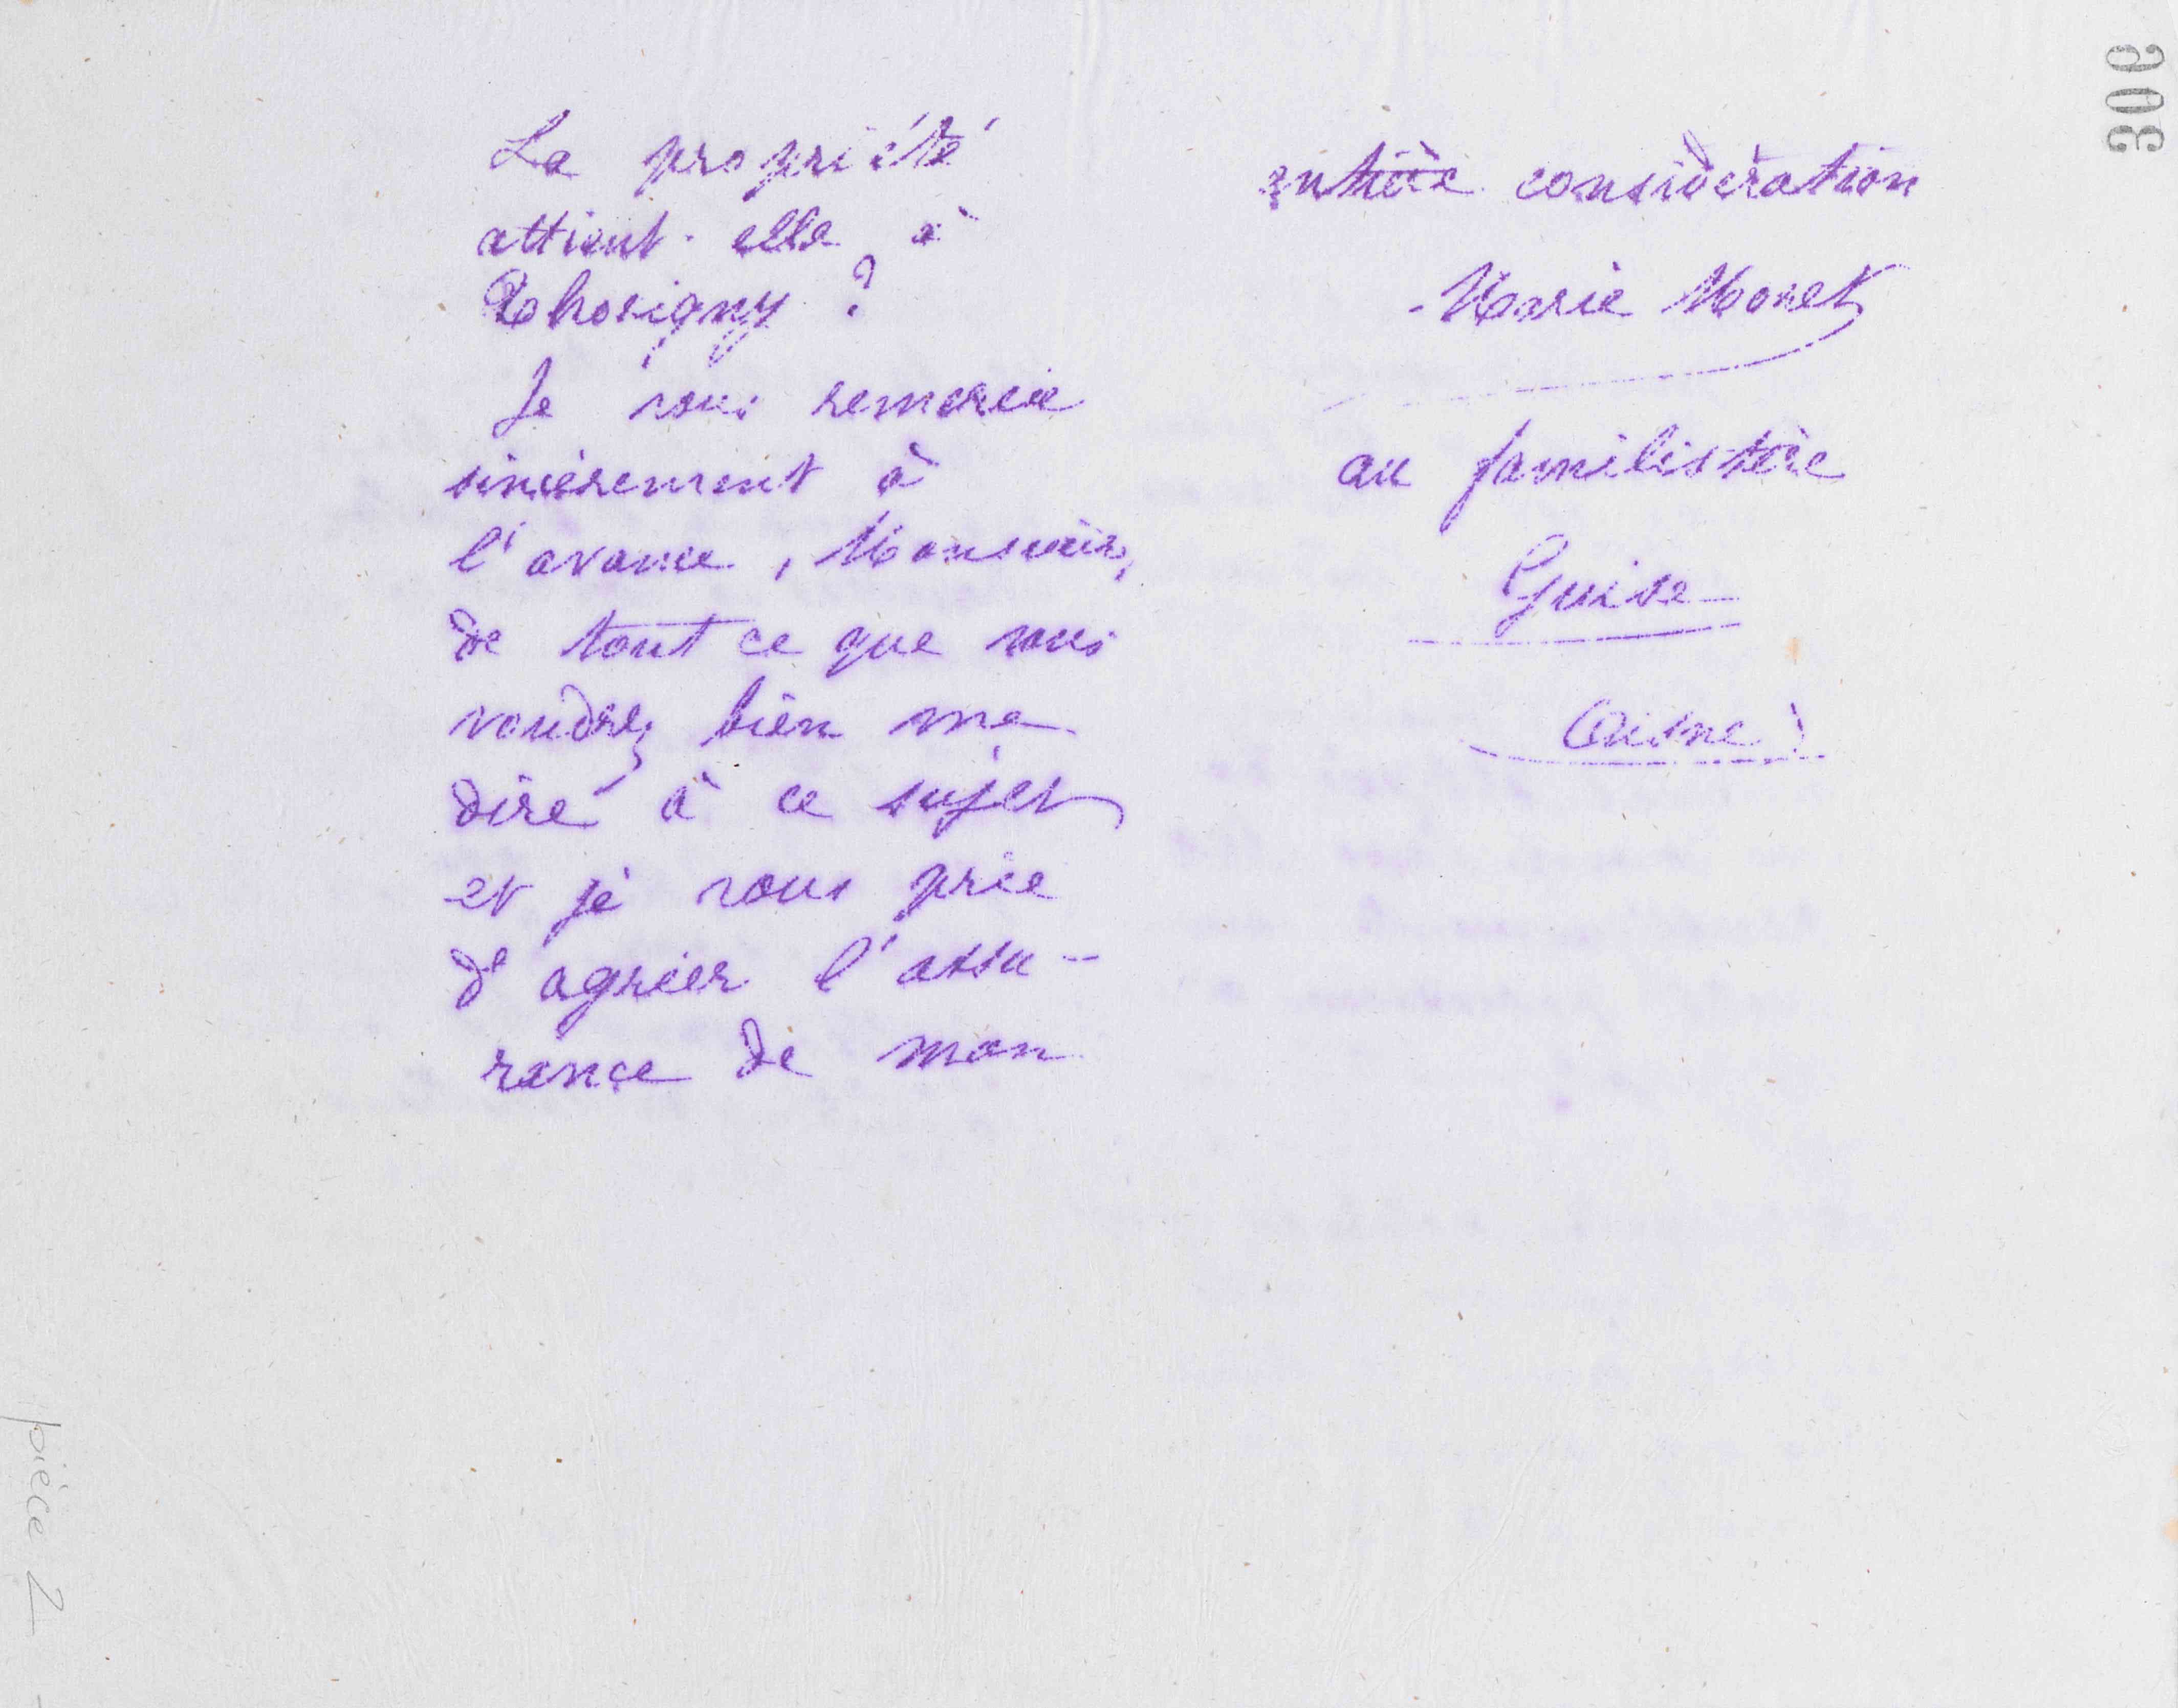 La propriété
attient-elle à
Thorigny ?
Je vous remercie
sincèrement à
l'avance, Monsieur,
de tout ce que vous
voudrez bien me
dire à ce sujet
et je vous prie
d'agréer l'assu-
rance de mon
entière considération
Marie Moret
au familistère
Guise
(Aisne)
306
pièce 2